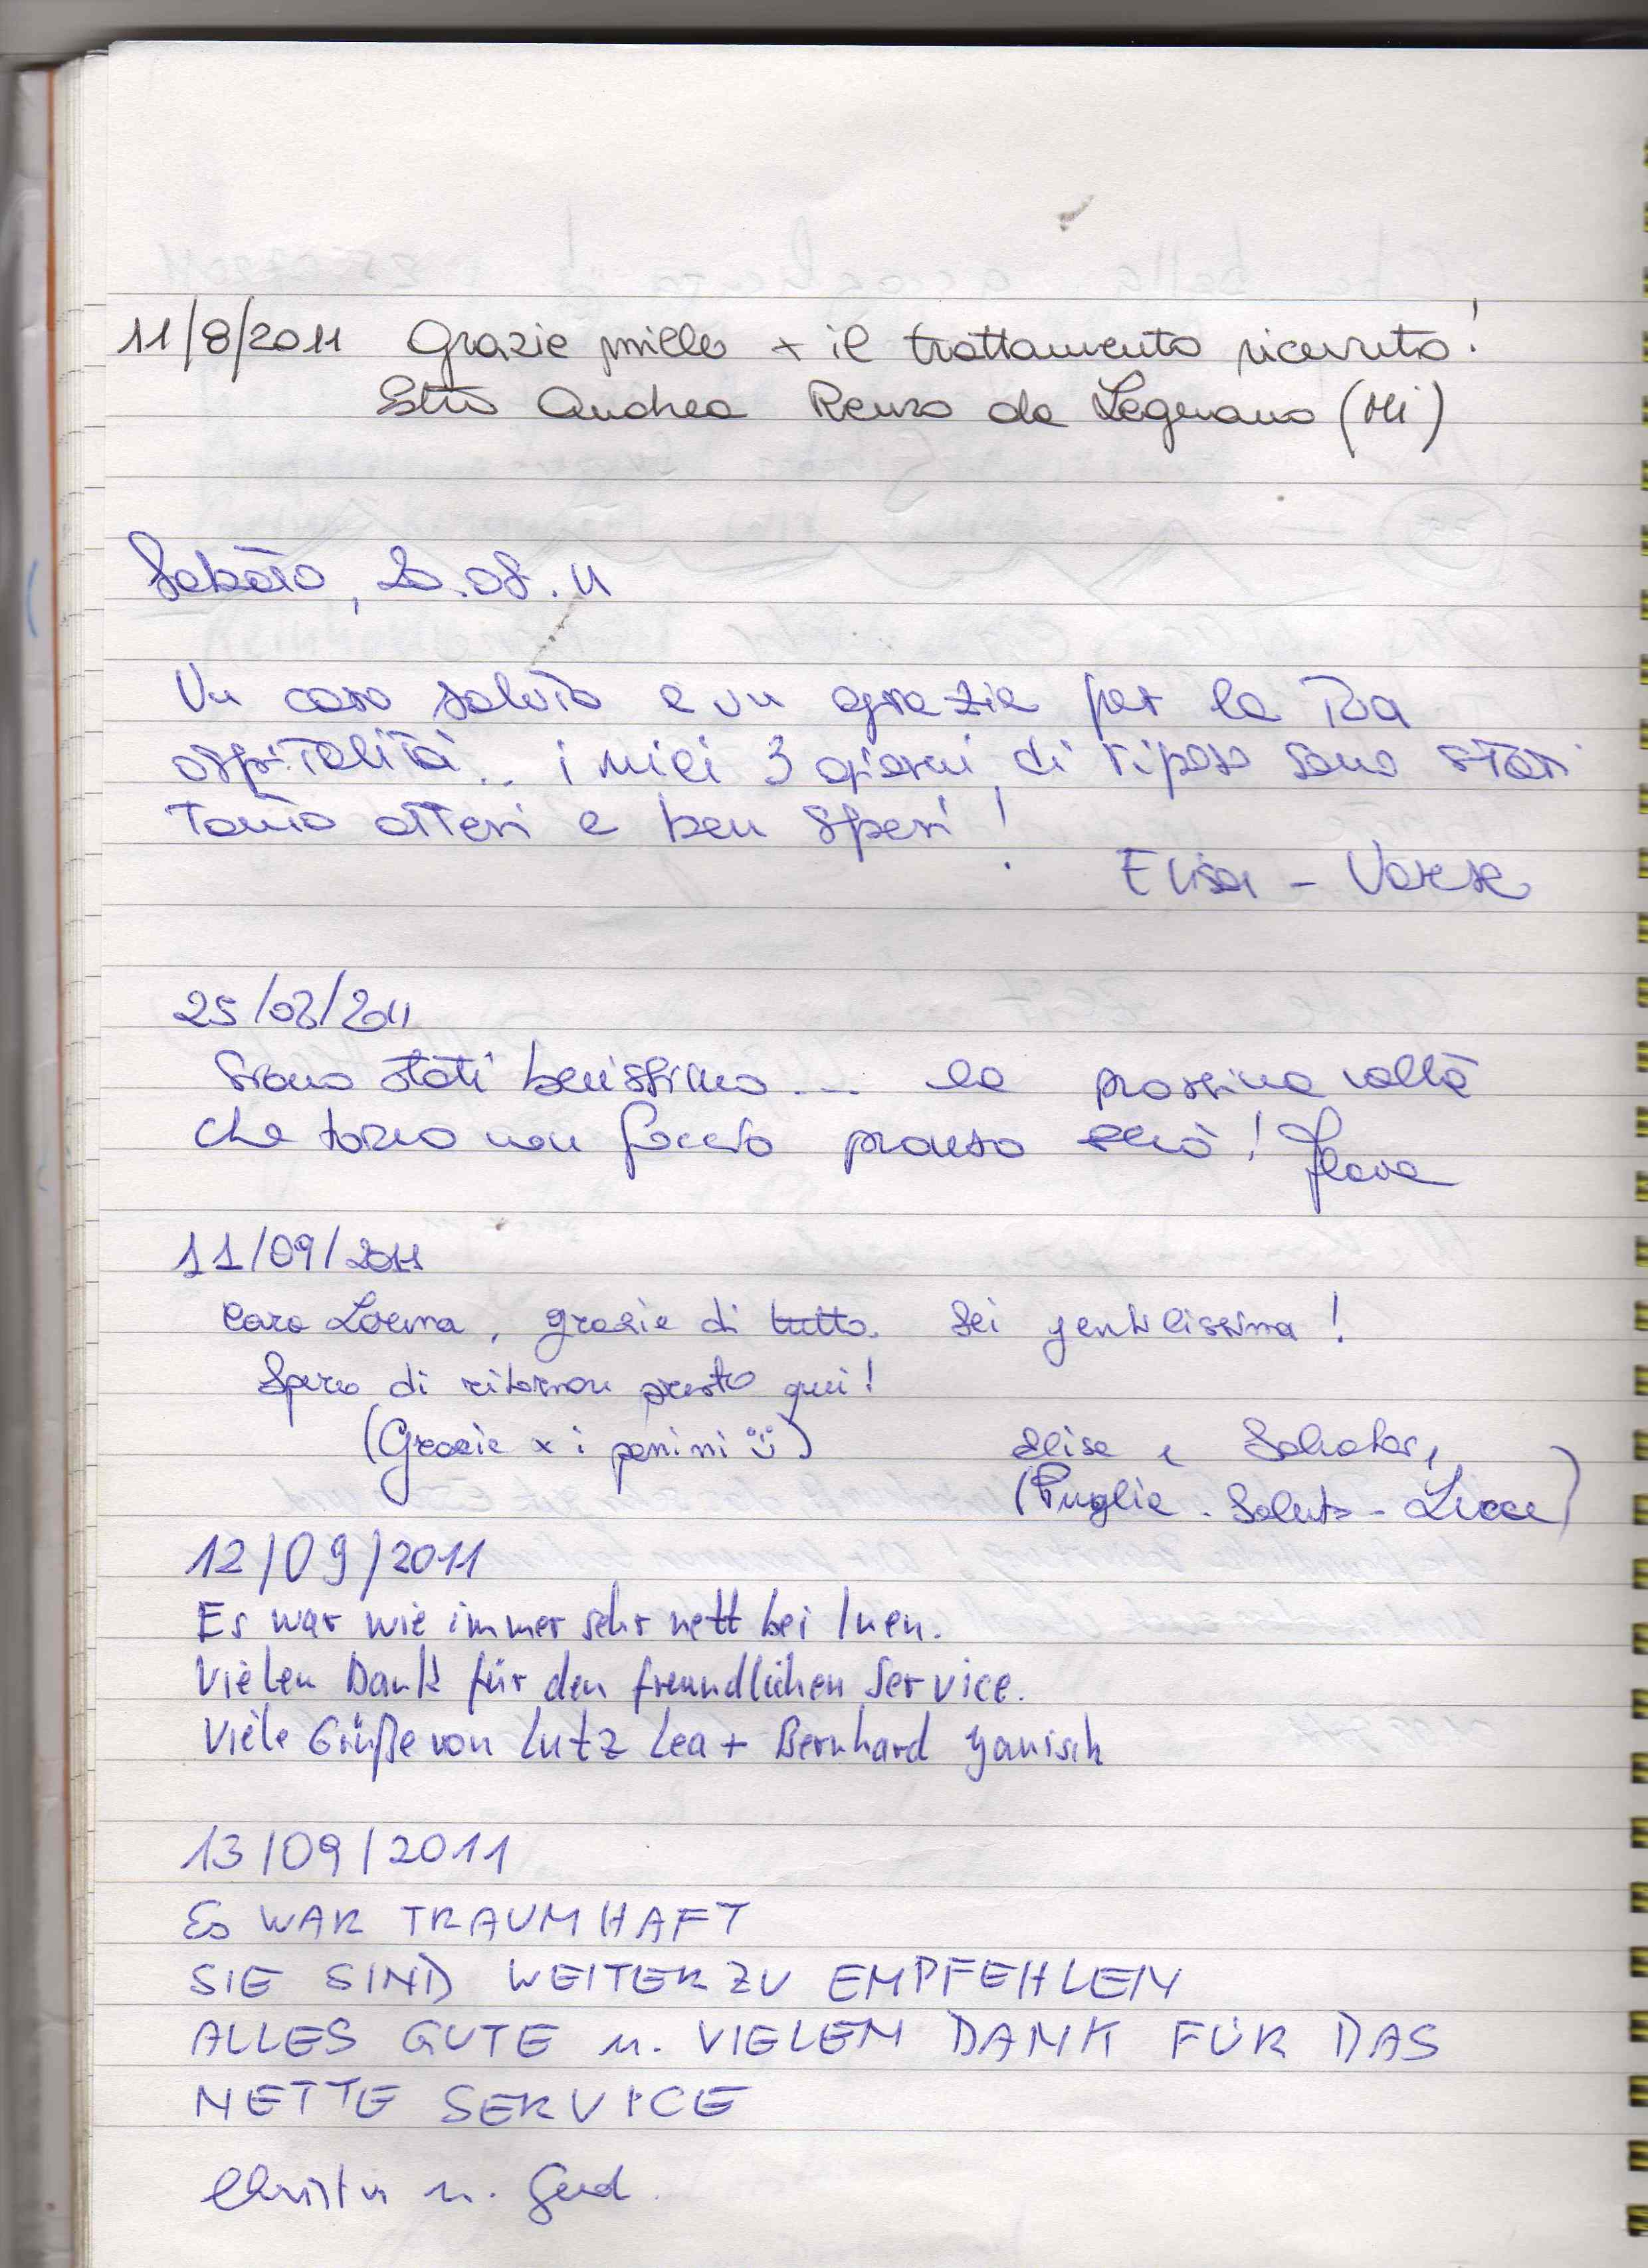 11/8/2011 Grazie mille x il trattamento ricevuto!
Andrea Renzo da Legnano (Mi)
Sabato, 20.08.11
Un caro saluto e un grazie per la tua
ospitalità.. i miei 3 giorni di riposo sono stati
tanto attesi e ben spesi!
Elisa - Varese
25/08/2011
Siamo stati benissimo... la prossima volta
che torno non faccio pranzo però!
11/09/2011
Cara Lorena, grazie di tutto. Sei gentilissima!
Spero di ritornare presto qui!
(Grazie x i panini ☺) Elisa e Salvatore
(Puglia - Salento - Lecce)
12/09/2011
Es war wie immer sehr nett bei Inen.
Vielen Dank für den freundlichen Service.
Viele Grüße von Lutz Lea + Bernhard Yanisch
13/09/2011
Es WAR TRAUMHAFT
SIE SIND WEITER ZU EMPFEHLEN
ALLES GUTE u. VIELEN DANK FÜR DAS
NETTE SERVICE
Christa u. Gerd